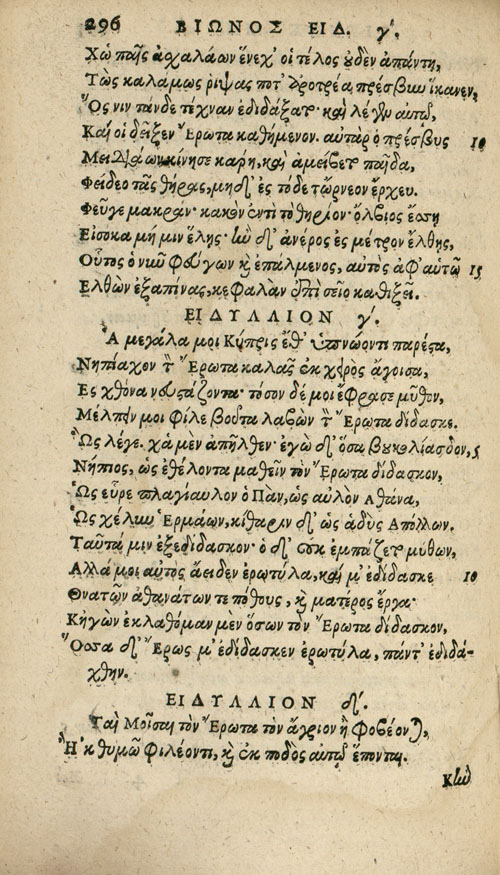 296 ΒΙΩΝΟΣ ΕΙΔ. γʹ.
Χὠ παῖς ἀσχαλάων ἕνεχ' οἱ τέλος οὐδὲν ἀπάντη,
Τὼς καλάμως ῥίψας ποτ' ἀροτρέα πρέσβυν ἵκανεν,
Ὅς νιν τάνδε τέχναν ἐδιδάξατο· καὶ λέγεν αὐτῷ,
Καί οἱ δεῖξεν Ἔρωτα καθήμενον. αὐτὰρ ὁ πρέσβυς 10
Μειδιάων κίνησε κάρη, καὶ ἀμείβετο παῖδα,
Φείδεο τᾶς θήρας, μηδ' ἐς τόδε τὤρνεον ἔρχευ.
Φεῦγε μακράν· κακὸν ἐντὶ τὸ θηρίον· ὄλβιος ἔσσῃ
Εἰσόκα μή μιν ἕλῃς· ἢν δ' ἀνέρος ἐς μέτρον ἔλθῃς,
Οὗτος ὁ νῦν φεύγων καὶ ἐπάλμενος, αὐτὸς ἀφ' αὑτῶ 15
Ἐλθὼν ἐξαπίνας, κεφαλὰν ἐπὶ σεῖο καθιξεῖ.
ΕΙΔΥΛΛΙΟΝ γʹ.
Ἁ μεγάλα μοι Κύπρις ἔθ' ὑπνώοντι παρέστα,
Νηπίαχον τὸν Ἔρωτα καλᾶς ἐκ χειρὸς ἄγοισα,
Ἐς χθόνα νευστάζοντα· τόσον δέ μοι ἔφρασε μῦθον,
Μέλπειν μοι φίλε βοῦτα λαβὼν τὸν Ἔρωτα δίδασκε.
Ὣς λέγε. χἁ μὲν ἀπῆλθεν· ἐγὼ δ' ὅσα βυκολίασδον, 5
Νήπιος, ὡς ἐθέλοντα μαθεῖν τὸν Ἔρωτα δίδασκον,
Ὡς εὗρε πλαγίαυλον ὁ Πὰν, ὡς αὐλὸν Ἀθάνα,
Ὡς χέλυν Ἑρμάων, κίθαριν δ' ὡς ἁδὺς Ἀπόλλων.
Ταῦτά μιν ἐξεδίδασκον· ὁ δ' οὐκ ἐμπάζετο μύθων,
Ἀλλά μοι αὐτὸς ἄειδεν ἐρωτύλα, καί μ' ἐδίδασκε 10
Θνατῶν ἀθανάτων τε πόθους, καὶ ματέρος ἔργα·
Κἠγὼν ἐκλαθόμαν μὲν ὅσων τὸν Ἔρωτα δίδασκον,
Ὅσσα δ' Ἔρως μ' ἐδίδασκεν ἐρωτύλα, πάντ' ἐδιδά-
χθην.
ΕΙΔΥΛΛΙΟΝ δʹ.
Ταὶ Μοῖσαι τὸν Ἔρωτα τὸν ἄγριον ἢ φοβέονται,
Ἢ 'κ θυμῶ φιλέοντι, καὶ ἐκ ποδὸς αὐτῷ ἕπονται.
Κἢν